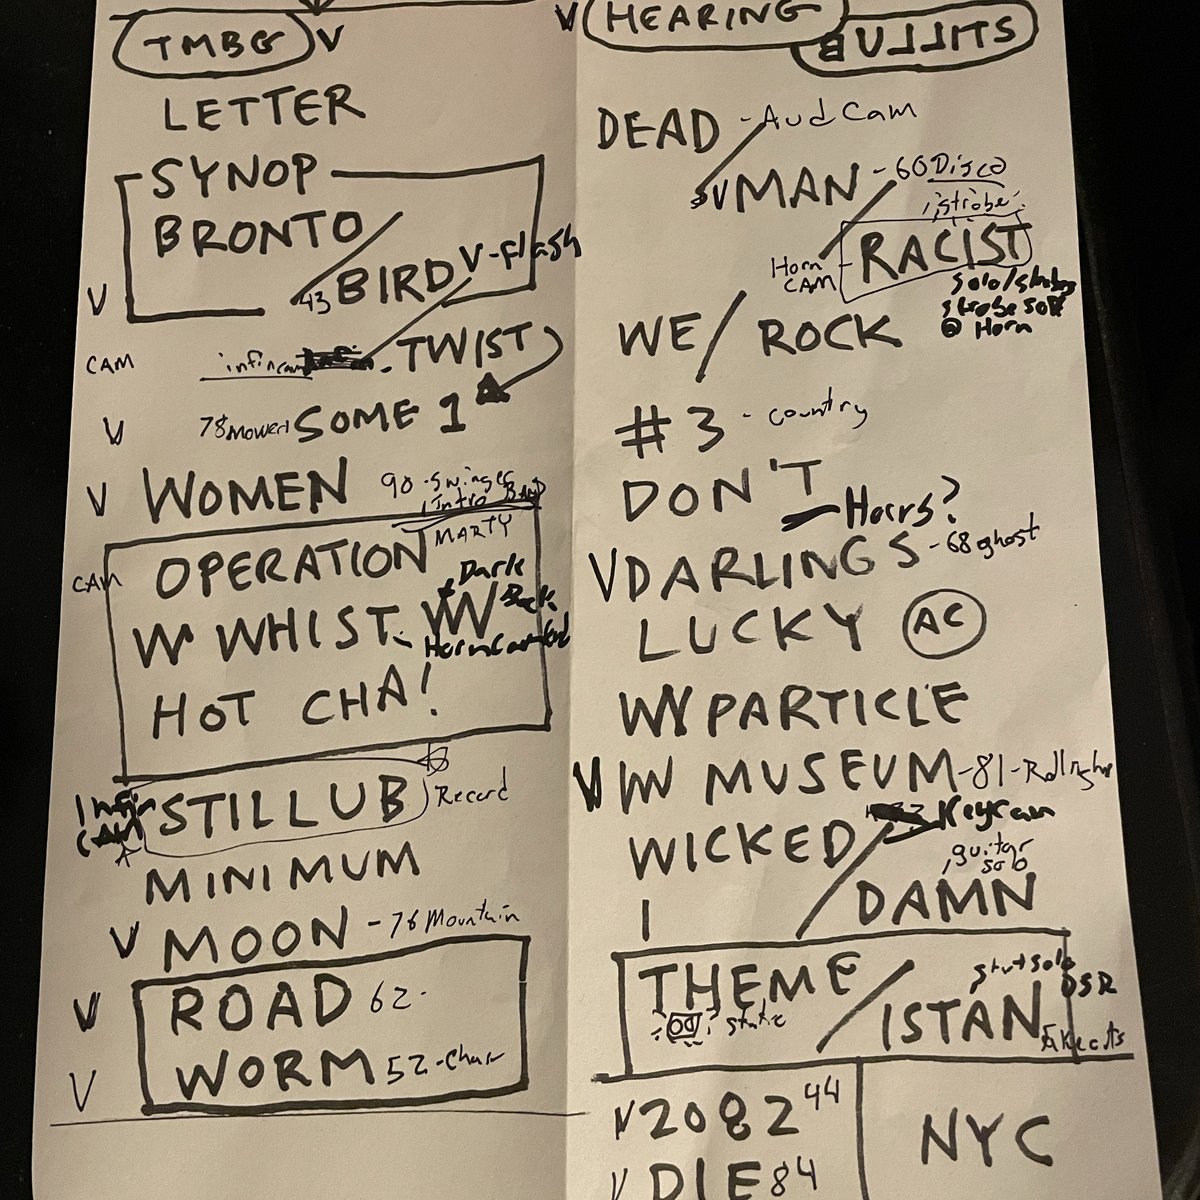 TMBG V
LETTER
SYNOP
BRONTO
V 43 BIRD V-flash
CAM infincam TWIST
V 78 Mower SOME 1
V WOMEN 90-Swinger
Intro BAND
MARTY
CAM OPERATION
Dark
W WHIST. W Back
Horncam
HOT CHA!
Infin
CAM STILLUB Record
MINIMUM
V MOON - 76 Mountain
V ROAD 62-
V WORM 52-Chair
V HEARING
STILLUB
DEAD - Aud Cam
V MAN - 60 Disco
strobe
Horn
CAM RACIST
Solo/strobe
strobe soft
@ Horn
WE / ROCK
#3 - country
DON'T
Horns?
V DARLINGS - 68 ghost
LUCKY AC
W PARTICLE
V W MUSEUM - 81 -
Keycam
WICKED
guitar
solo
I DAMN
THEME
static
solo
DSR
ISTAN
V 2082 44
NYC
V DIE 84